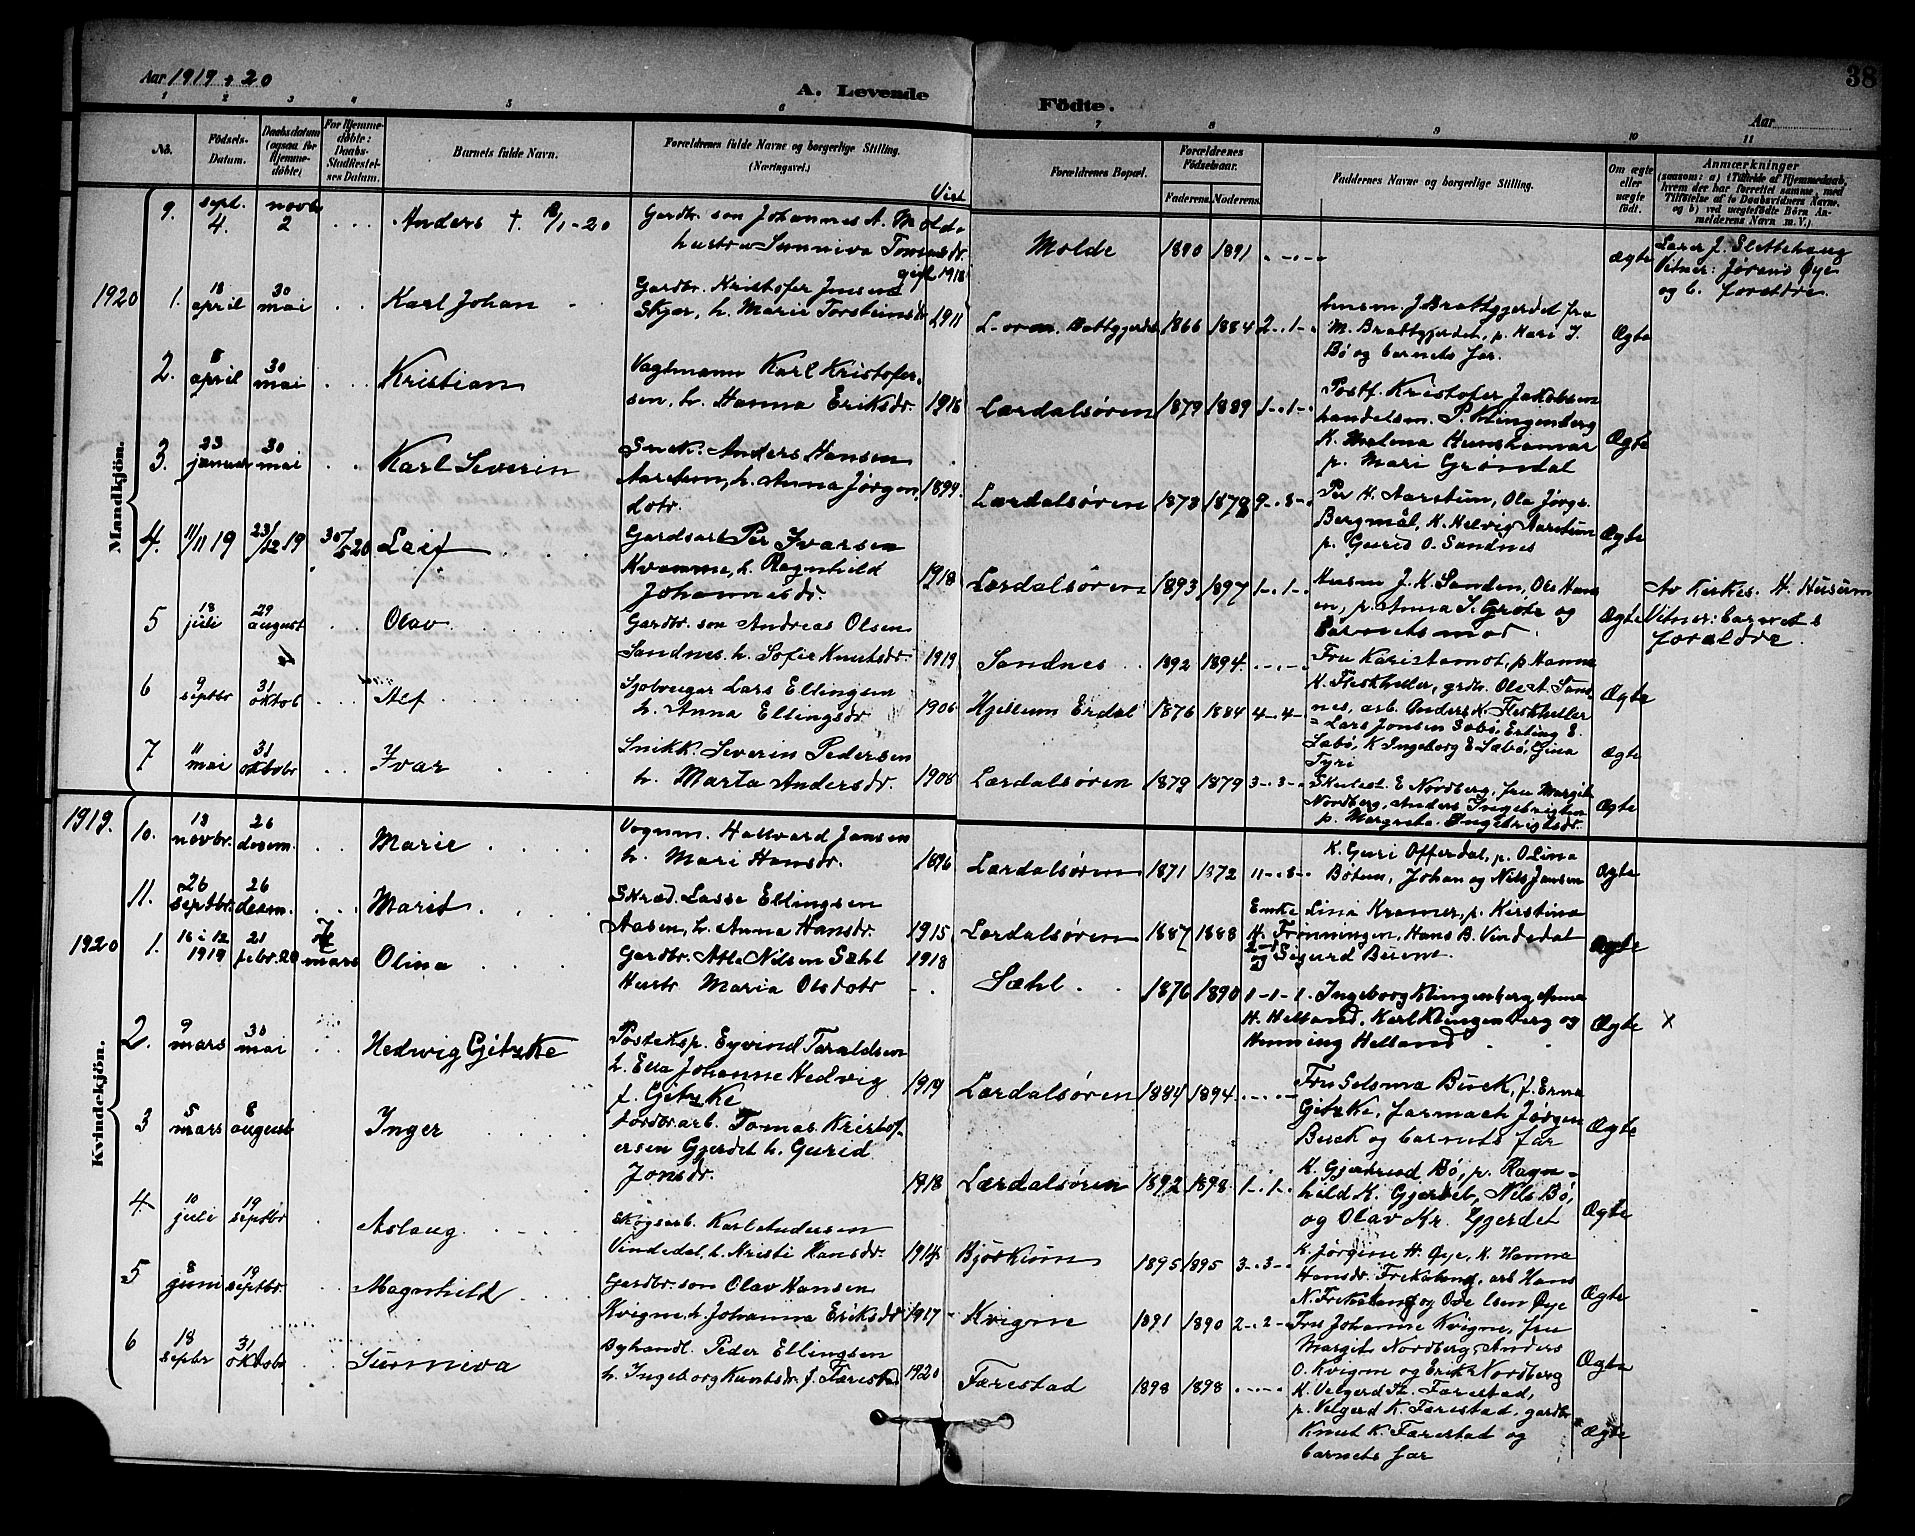 Aar 1919 + 20
A. Levende
Födte.
38
Aar
1 2 3 4 5 6 7 8 9 10 11
No.
Födsels-
Datum.
Daabsdatum
(ogsaa for
Hjemme-
døbte)
For Hjemme-
døbte:
Daabs-
Stadfestel-
ses Datum.
Barnets fulde Navn.
Forældrenes fulde Navne og borgerlige Stilling.
(Næringsvei.)
Viet
Forældrenes Bopæl.
Forældrenes
Födselsaar.
Faderens. Moderens.
Faddernes Navne og borgerlige Stilling.
Om ægte
eller
uægte
født.
Anmærkninger
(saasom: a) i Tilfælde af Hjemmedaab,
hvem der har forrettet samme, med
Tilføielse af to Daabsvidners Navne,
og b) ved uægtefødte Børn An-
melderens Navn m. V.)
Mandkjön.
9. sept. 4. novbr 2 Anders + /1-20
Gardbr. son Johannes A. Molde
hustru Sunniva Tomasdr.
gift 1918
Molde 1890 1891 ægte
Lærer J. Slettehaug
Vitner: Jørand Øye
og b. foreldre.
1920 1. 18 april 30 mai Karl Johan
Gardbr. Kristofer Jensen
Skjær, h. Marie Torsteinsdr. 1911
1866 1884 2-.1-.
J. Brattgjerdet fru
M. Brattgjerdet, p. Kari I.
Bö og barnets far.
Ægte
2. 8 april 30 mai Kristian
Vagtmann Karl Kristofer-
sen, h. Hanna Eriksdr. 1916
Lærdalsøren 1879 1889 1-.1-.
Postf. Kristofer Jakobsen
handelsm. P. Klingenberg
K. Malena Hunshamar
p. Mari Grøndal
Ægte
3. 23 januar 30 mai Karl Severin
Snek. Anders Hansen
Aarstun, h. Anna Jörgen
dotr. 1899.
Lærdalsøren 1873 1878 9-.8-.
Per H. Aarstun, Ola Jørgs.
Bergmål, K. Helvig Aarstun
p. Gurid O. Sandnes
Ægte
4. 11/11 19 23/12 19 30/5 20 Leif
Gardsarb. Per Ivarsen
Kvamme, h. Ragnhild
Johannesdr. 1918
Lærdalsøren 1893 1897 1-.1-.
Husm J. K. Sanden, Ole Hans
en, p. Anna S. Grøte og
barnets mor.
Ægte
Av Kirkes. H. Husum
Vitner: barnets
foreldre.
5 18 juli 29 august Olav
Gardbr. son Andreas Olsen
Sandnes h. Sofie Knutsdr. 1919
Sandnes 1892 1894.
Fru Kari Stamot, p Hanna
K. Fleskheller, grdbr. Ole A. Sand
nes, arb. Anders K. Fleskheller
Ægte
6 9 septbr 31 oktob Alf
Sjobruger Lars Ellingsen
h. Anna Ellingsdr 1906
Hjellum Erdal 1876 1884 4-.4-.
Lars Jonsen Sabö, Erling E.
Sabö, K Ingeborg E. Sæbö, Gina
Tyri
Ægte
7 11 mai 31 oktobr Ivar
Snikk. Severin Pedersen
h. Marta Andersdr. 1906
Lærdalsøren 1879 1879 3-.3-.
Skulest. E Nordberg, fru Margit
Nordberg, Anders Ingebrigtsen
p. Margreta Ingebrigtsdr.
Ægte
Kvindekjön.
1919. 10. 13 novbr. 26 desem. Marie
Vognm. Hallvard Jansen
h. Mari Hansdr. 1896
Lærdalsøren 1871 1872 11-.8-
K. Guri Offerdal, p. Olina
Bötun, Johan og Nils Jansen
Ægte
11. 26 septbr. 26 desm. Marit
Skræd. Lasse Ellingsen
Aasen, h. Anna Hansdr. 1915
Lærdalsøren 1887 1888
Enke Lina Kramer, p. Kirstina
H. Trønningen, Hans B. Vindedal
og Sigurd Buene.
Ægte
1920 1. 16 i 12 1919 21 febr. 20 7 mars Olina
Gardbr. Atle Nilsen Sæhl 1918
Hustr Maria Olsdotr
Sæhl. 1876 1890 1-1-1.
Ingeborg Klingenberg, Anna
H. Helland, Karl Klingenberg og
Henning Helland
Ægte X
2. 9 mars 30 mai Hedwig Gitzke
Posteksp. Eyvind Taraldsen
h. Ella Johanne Hedvig
f. Gitzke 1919
Lærdalsøren 1884 1894
Fru Selsma Buck, f. Erna
Gitzke, farmach Jørgen
Buck og barnets far
Ægte
3 5 mars 8 august Inger
Jordbr arb. Tomas Kristof-
ersen Gjerdet h. Gurid
Jonsdr. 1918
Lærdalsøren 1892 1898 1-.1-.
K. Gjertrud Bö, p. Ragn-
hild K. Gjerdet, Nils Bö,
og Olav Kr. Gjerdet
Ægte
4. 10 juli 19 septbr Aslaug.
Skogsarb. Karl Andersen
Vindedal, h. Kristi Hansdr. 1914
Bjørkum 1895 1895 3-.3-.
K. Jørgine H. Øye, K. Hanna
Hansdr. Frikstang, arb Hans
N. Frikstang og Ove Isen Øye
Ægte
5 8 juni 19 septbr. Magnhild
Gardbr. son Olav Hansen
Kvigne, h. Johanna Eriksdr 1917
Kvigne 1891 1890 2-.2-.
Fru Johanne Kvigne, fru
Margit Nordberg, Anders
O. Kvigne og Erik Nordberg
Ægte
6 18 septbr 31 oktobr Sunneva
Byhandl. Peder Ellingsen
h. Ingeborg Knutsdr. f. Færestad 1920
Færestad 1898 1898
K. Valgerd Th. Færestad,
p. Valgerd K. Færestad. gardbr
Knut K. Færestad og
barnets far
Ægte